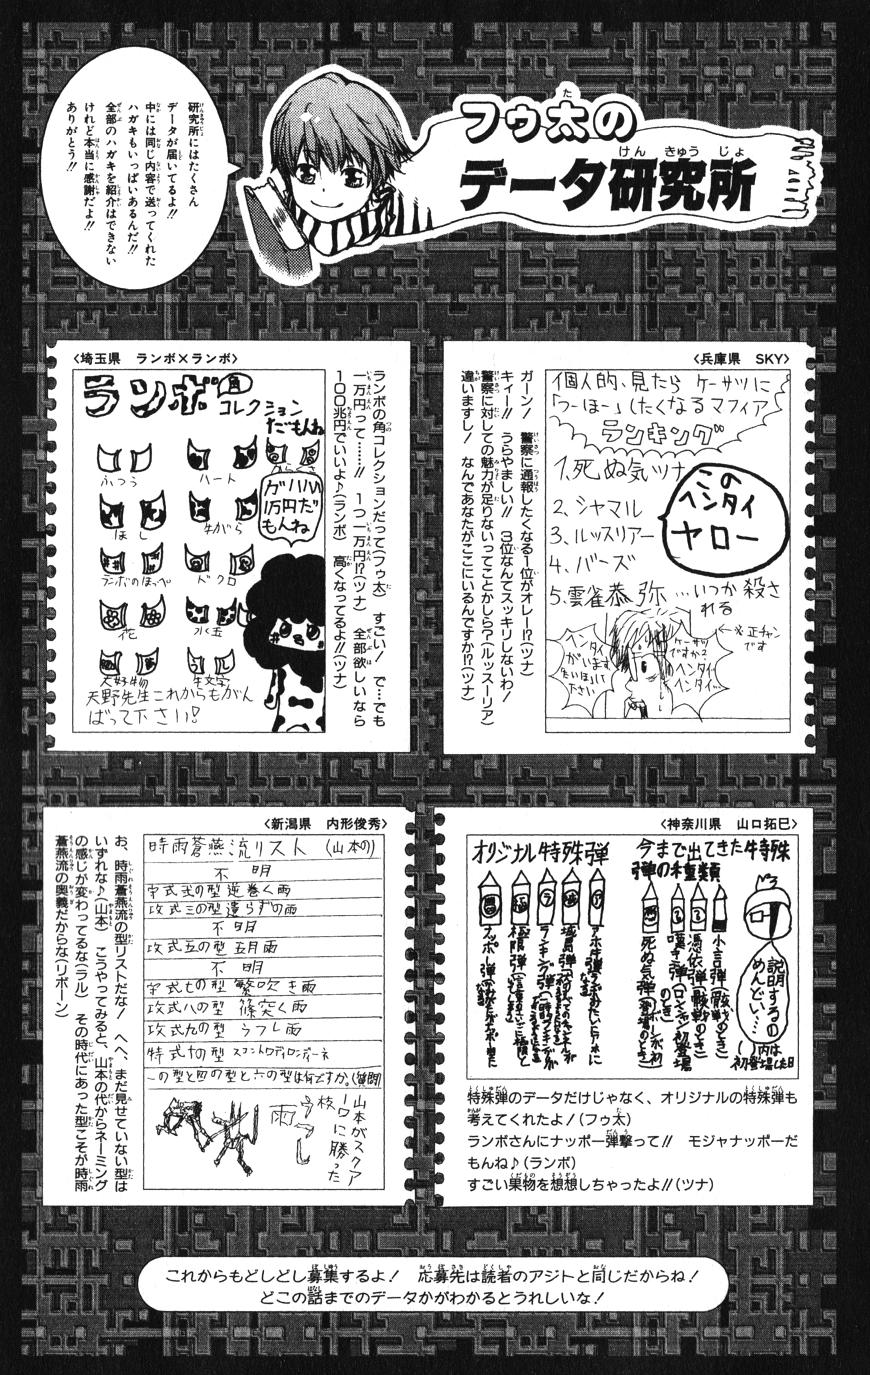 フゥ太の
データ研究所
研究所にはたくさん
データが届いてるよ!!
中には同じ内容で送ってくれた
ハガキもいっぱいあるんだ!!
全部のハガキを紹介はできない
けれど本当に感謝だよ!!
ありがとう!!
〈兵庫県 SKY〉
個人的、見たら ケーサツに
「つーほー」したくなるマフィア
ランキング
1.死ぬ気ツナ
2.シャマル
3.ルッスリアー
4.バーズ
5.雲雀恭弥…いつか殺さ
れる
この
ヘンタイ
ヤロー
←※正チャン
です
ケーサツ
ですか?
ヘンタイ
ヘンタイ…
ガーン! 警察に通報したくなる1位がオレー!?(ツナ)
キィー!! うらやましい!! 3位なんてスッキリしないわ!
警察に対しての魅力が足りないってことかしら?(ルッスーリア)
違いますし! なんであなたがここにいるんですか!?(ツナ)
〈埼玉県 ランボ×ランボ〉
ランボ角
コレクション
だもんね
ふつう
ハート
ほし
牛がら
ランボのほっぺ
ドクロ
花
水玉
大好物
牛文字
ガハハ
1万円だ
もんね
天野先生これからもがん
ばって下さい!
ランボの角コレクションだって(フゥ太) すごい! で…でも
一万円って……!! 1つ一万円!?(ツナ) 全部欲しいなら
100兆円でいいよ♪(ランボ) 高くなってるよ!!(ツナ)
〈神奈川県 山口拓巳〉
今まで出てきた特殊
弾の種類
説明するの
めんどい…
( )内は
初登場した日
小言弾(骸戦のとき)
憑依弾(骸戦のとき)
嘆き弾(ロンシャン初登場
のとき)
オリジナル特殊弾
特殊弾のデータだけじゃなく、オリジナルの特殊弾も
考えてくれたよ!(フゥ太)
ランボさんにナッポー弾撃って!! モジャナッポーだ
もんね♪(ランボ)
すごい果物を想想しちゃったよ!!(ツナ)
〈新潟県 内形俊秀〉
時雨蒼燕流リスト (山本の)
不明
守式弐の型 逆巻く雨
攻式三の型 遣らずの雨
不明
攻式五の型 五月雨
不明
守式七の型 繁吹き雨
攻式八の型 篠突く雨
攻式九の型 うつし雨
特式十の型 スコントロ・ディ・ローンディネ
一の型と四の型と六の型は何ですか。(質問)
山本がスクア
ーロに勝った
技
雨
うつし
お、時雨蒼燕流の型リストだな! へへ、まだ見せていない型は
いずれな♪(山本) こうやってみると、山本の代からネーミング
の感じが変わってるな(ラル) その時代にあった型こそが時雨
蒼燕流の奥義だからな(リボーン)
これからもどしどし募集するよ! 応募先は読者のアジトと同じだからね!
どこの話までのデータかがわかるとうれしいな!